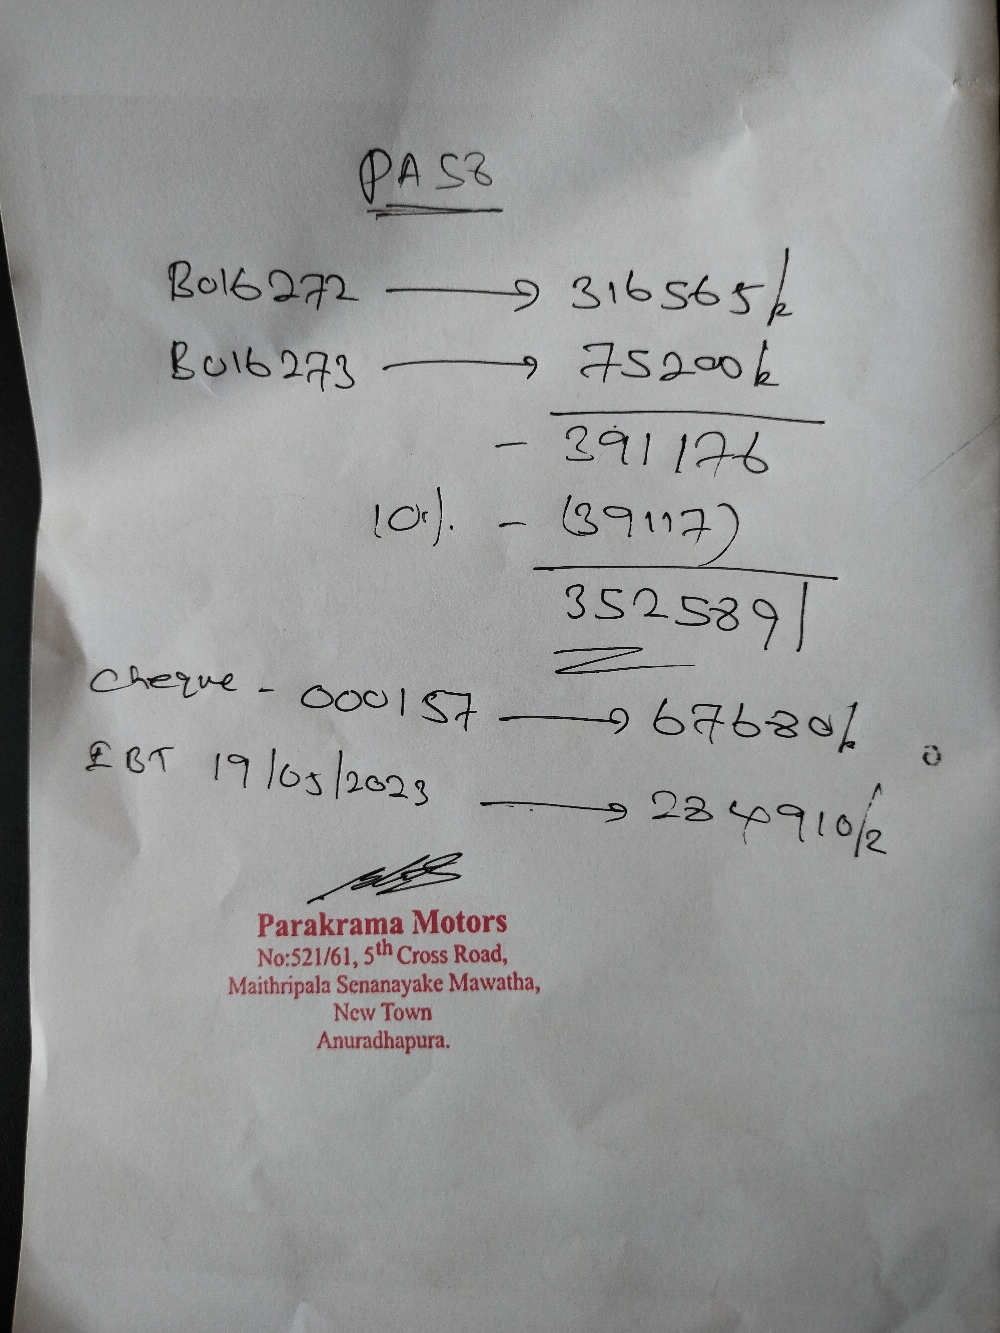 PA58
B016272 → 316565/=
B016273 → 75200/=
- 391176
10% - (39117)
352589/
Cheque - 000157 → 67680/=
EBT 19/05/2023 → 284910/=
Parakrama Motors
No:521/61, 5th Cross Road,
Maithripala Senanayake Mawatha,
New Town
Anuradhapura.